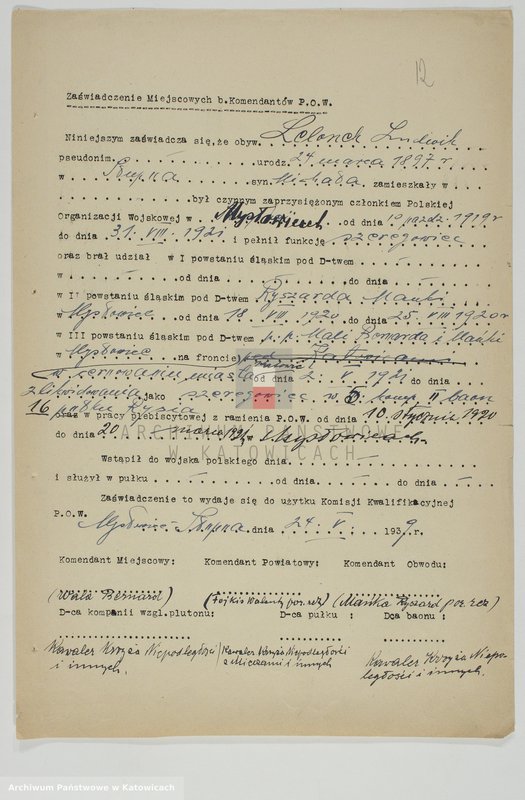 12
Zaświadczenie Miejscowych b.Komendantów P.O.W.
Niniejszym zaświadcza się,że obyw. Lelonek Ludwik
pseudonim. — urodz. 24 marca 1897 r
w Słupna syn. Michała zamieszkały w
był czynnym zaprzysiężonym członkiem Polskiej
Organizacji Wojskowej w Mysłowicach od dnia 10 paźdz. 1919 r
do dnia 31. VIII. 1921 i pełnił funkcję szeregowiec
oraz brał udział w I powstaniu śląskim pod D-twem
w — od dnia — do dnia —
w II powstaniu śląskim pod D-twem Ryszarda Mańki
w Mysłowice od dnia 18 VIII 1920 do dnia 25. VIII 1920 r
w III powstaniu śląskim pod D-twem p.p. Wali Bernarda i Mańki
w Mysłowice na froncie pod
w cernowaniu miasta od dnia 2. V. 1921 do dnia
zlikwidowania jako szeregowiec w 5. komp. II baon
16 pułku
oraz w pracy plebiscytowej z ramienia P.O.W. od dnia 10 stycznia 1920
do dnia 20 marca 1921 w Mysłowicach
Wstąpił do wojska polskiego dnia. —
i służył w pułku — od dnia. — do dnia —
Zaświadczenie to wydaje się do użytku Komisji Kwalifikacyjnej
P.O.W.
Mysłowice-Słupna dnia 24 V 1939 r.
Komendant Miejscowy: Komendant Powiatowy: Komendant Obwodu:
(Wala Bernard) (Fojkis Walenty por. rez) (Mańka Ryszard por. rez)
D-ca kompanii wzgl.plutonu: D-ca pułku : Dca baonu :
Kawaler Krzyża Niepodległości i innych.
Kawaler Krzyża Niepodległości z Mieczami i innych
Kawaler Krzyża Niepodległości i innych.
ARCHIWUM PAŃSTWOWE
W KATOWICACH
Archiwum Państwowe w Katowicach